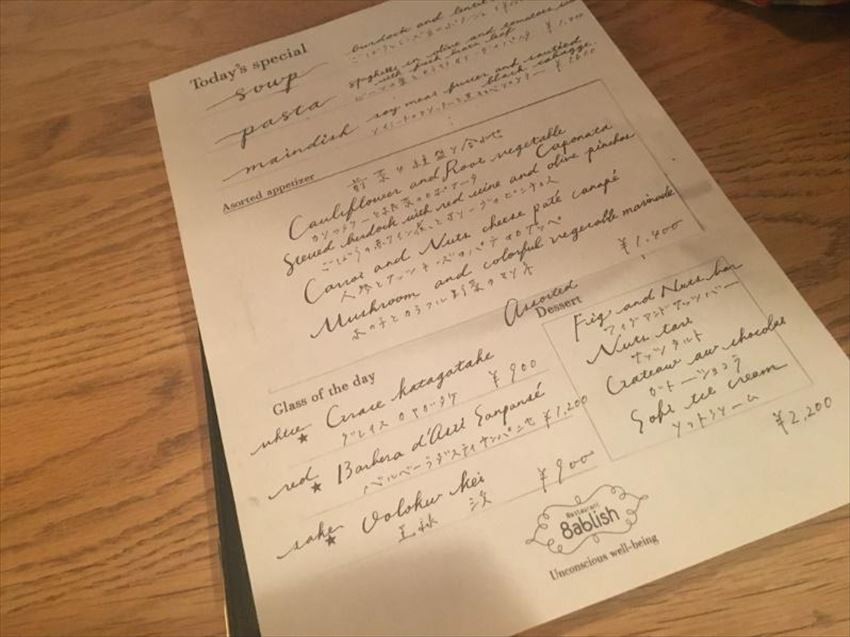 Today's special
soup
burdock and lentil
¥1,000
pasta
spaghetti in olive and tomatoes
with fresh
maindish
soy meat fritter and sautéed
black cabbage
Asorted appetizer
前菜の盛り合わせ
Cauliflower and Root vegetable Caponata
カリフラワーと根菜のカポナータ
Stewed burdock with red wine and olive pinchos
ごぼうの赤ワイン煮とオリーブのピンチョス
Carrot and Nuts cheese paté canapé
人参とナッツチーズのパテのカナッペ
Mushroom and colorful vegetable marinade
木の子とカラフル野菜のマリネ
¥1,400
Glass of the day
white ★ Grace katagatake ¥900
グレイス
red ★ Barbera d'Asti Sanpansé ¥1,200
バルベーラダスティ
sake ★ ¥900
Assorted
Dessert
Fig and Nuts bar
フィグアンドナッツバー
Nuts tart
ナッツタルト
Gateau au chocolat
ガトーショコラ
Soft ice cream
ソフトクリーム
¥2,200
Restaurant
8ablish
Unconscious well-being